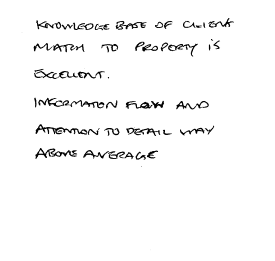 KNOWLEDGE BASE OF CLIENT
MATCH TO PROPERTY IS
EXCELLENT.
INFORMATION FLOW AND
ATTENTION TO DETAIL WAY
ABOVE AVERAGE